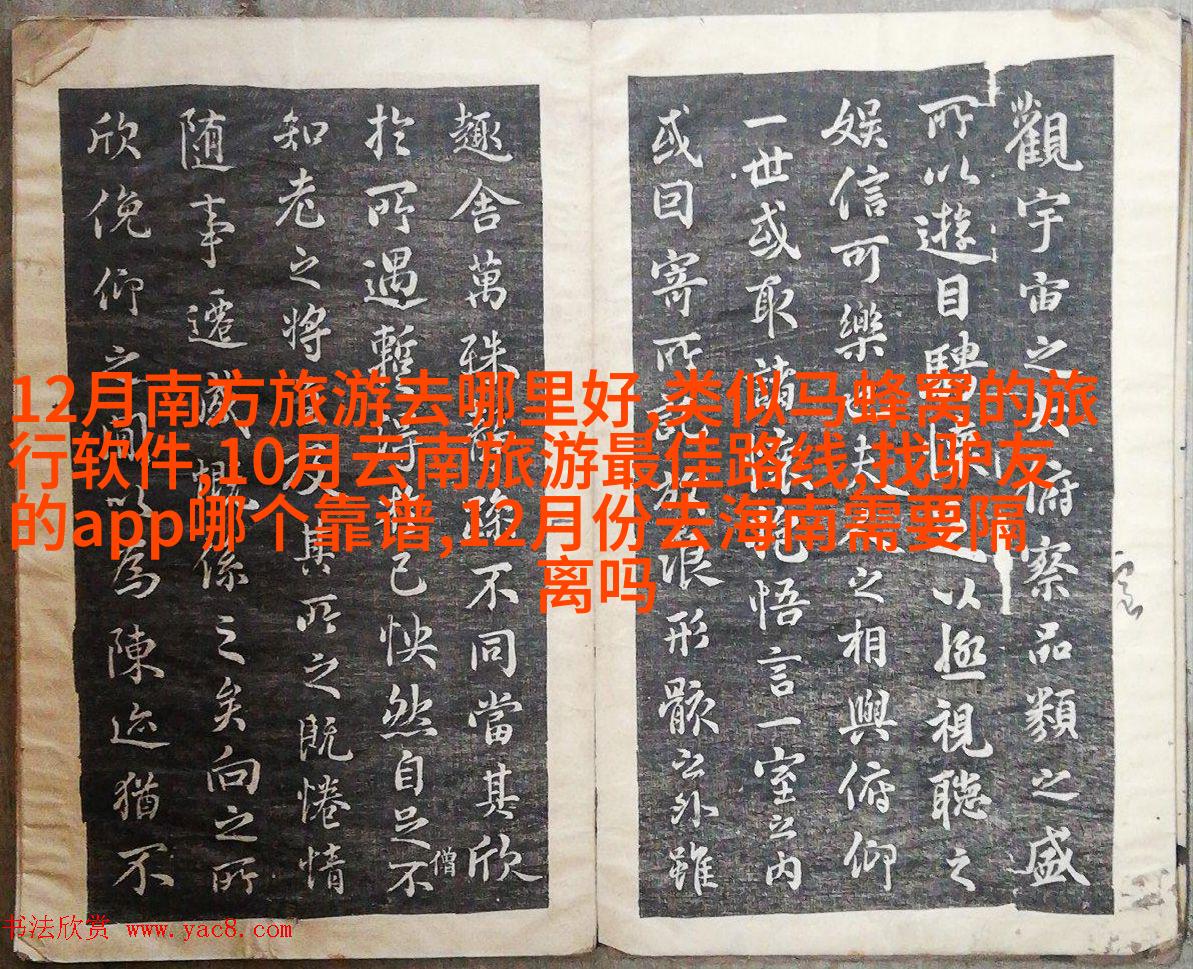 觀宇宙之大俯察品類之盛
所以遊目騁懷足以極視聽之
娱信可樂也夫人之相與俯仰
一世或取諸懷抱悟言一室之内
或因寄所託放浪形骸之外雖
趣舍萬殊靜躁不同當其欣
於所遇暫得於己怏然自足不
僧
知老之將至及其所之既惓情
随事遷感慨係之矣向之所
欣俛仰之間以為陳迹猶不
12月南方旅游去哪里好,类似马蜂窝的旅
行软件,10月云南旅游最佳路线,找驴友
的app哪个靠谱,12月份去海南需要隔
离吗
书法欣赏 www.yac8.com